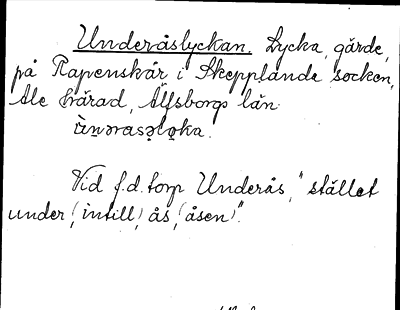 Underåslyckan. Lycka, gärde,
på Rapenskår i Skepplanda socken,
Ale härad, Älfsborgs län.
Vid f.d. torp Underås, "stället
under (intill) ås, (åsen)".